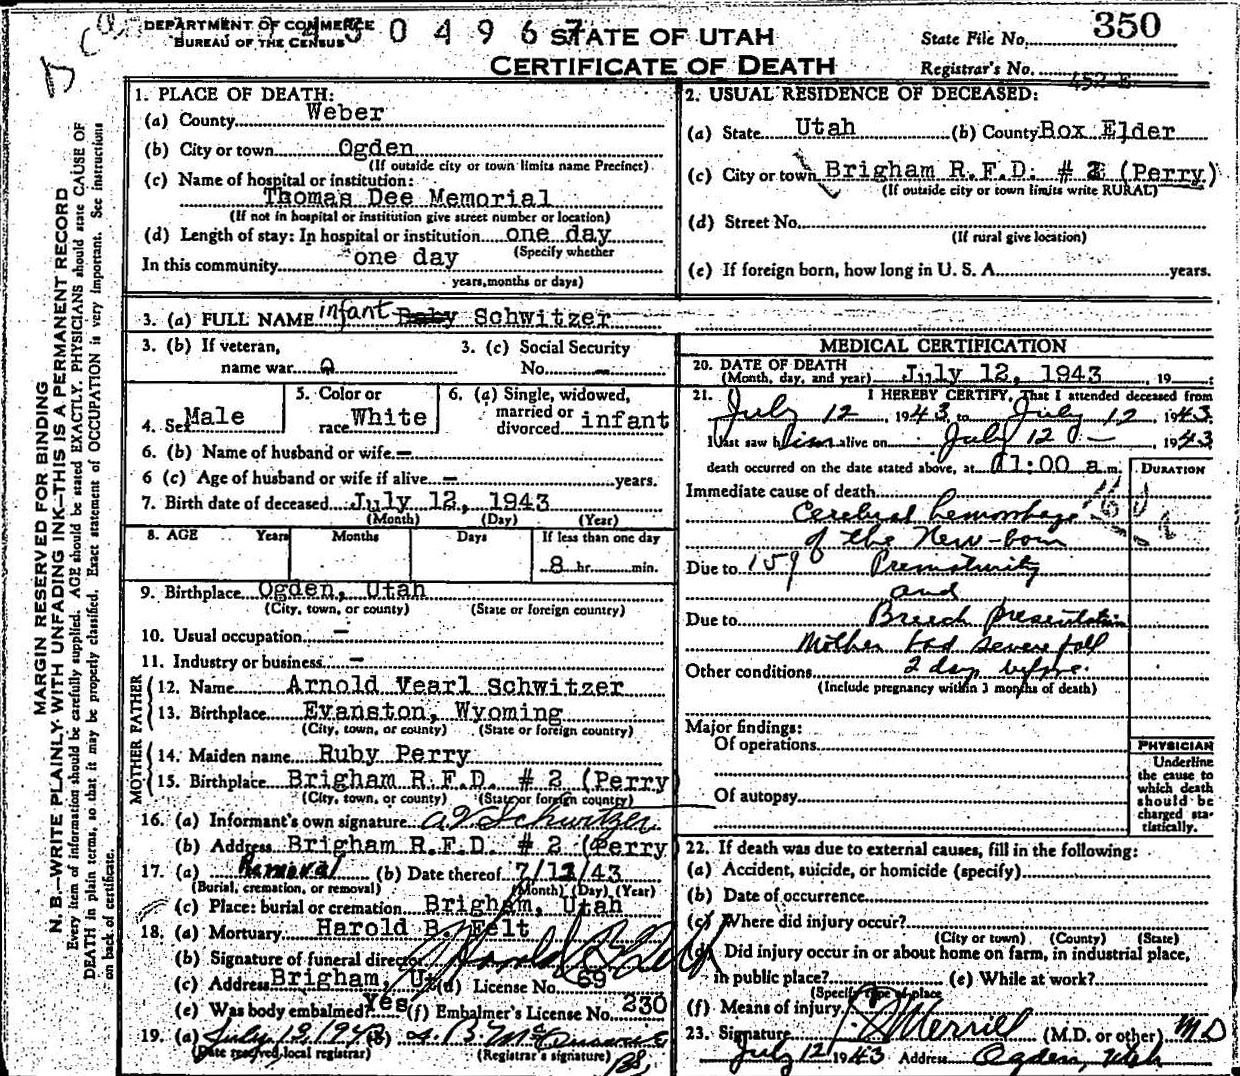 DEPARTMENT OF COMMERCE
BUREAU OF THE CENSUS
5 0 4 9 6 7
STATE OF UTAH
CERTIFICATE OF DEATH
State File No. 350
Registrar's No. 452-E
MARGIN RESERVED FOR BINDING
N. B.—WRITE PLAINLY WITH UNFADING INK—THIS IS A PERMANENT RECORD
Every item of information should be carefully supplied. AGE should be stated EXACTLY. PHYSICIANS should state CAUSE OF
DEATH in plain terms, so that it may be properly classified. Exact statement of OCCUPATION is very important. See instructions
on back of certificate.
1. PLACE OF DEATH:
(a) County Weber
(b) City or town Ogden
(If outside city or town limits name Precinct)
(c) Name of hospital or institution:
Thomas Dee Memorial
(If not in hospital or institution give street number or location)
(d) Length of stay: In hospital or institution one day
(Specify whether
In this community one day
years, months or days)
2. USUAL RESIDENCE OF DECEASED:
(a) State Utah (b) County Box Elder
(c) City or town Brigham R.F.D. # 2 (Perry)
(If outside city or town limits write RURAL)
(d) Street No.
(If rural give location)
(e) If foreign born, how long in U. S. A. years.
3. (a) FULL NAME infant Baby Schwitzer
3. (b) If veteran,
name war 0
3. (c) Social Security
No. —
4. Sex Male
5. Color or
race White
6. (a) Single, widowed,
married or
divorced infant
6. (b) Name of husband or wife —
6 (c) Age of husband or wife if alive — years.
7. Birth date of deceased July 12, 1943
(Month) (Day) (Year)
8. AGE Years Months Days If less than one day
8 hr. min.
9. Birthplace Ogden, Utah
(City, town, or county) (State or foreign country)
10. Usual occupation —
11. Industry or business —
FATHER
12. Name Arnold Vearl Schwitzer
13. Birthplace Evanston, Wyoming
(City, town, or county) (State or foreign country)
MOTHER
14. Maiden name Ruby Perry
15. Birthplace Brigham R.F.D. # 2 (Perry)
(City, town, or county) (State or foreign country)
16. (a) Informant's own signature A V Schwitzer
(b) Address Brigham R.F.D. # 2 (Perry
17. (a) Removal (b) Date thereof 7/13/43
(Burial, cremation, or removal) (Month) (Day) (Year)
(c) Place: burial or cremation Brigham, Utah
18. (a) Mortuary Harold B. Felt
(b) Signature of funeral director Harold B. Felt
(c) Address Brigham, Ut (d) License No. 69
(e) Was body embalmed? Yes (f) Embalmer's License No. 230
19. (a) July 13, 1943 (b)
(Date received local registrar) (Registrar's signature)
MEDICAL CERTIFICATION
20. DATE OF DEATH
(Month, day, and year) July 12, 1943, 19
21. I HEREBY CERTIFY, That I attended deceased from
July 12 1943, to July 12 1943
I last saw him alive on July 12 1943
death occurred on the date stated above, at 11:00 a.m.
DURATION
Immediate cause of death
Cerebral hemorrhage
of the New-born
Due to 159 Prematurity
and
Due to Breech presentation
Mother had severe fall
Other conditions 2 days before.
(Include pregnancy within 3 months of death)
Major findings:
Of operations
Of autopsy
PHYSICIAN
Underline
the cause to
which death
should be
charged sta-
tistically.
22. If death was due to external causes, fill in the following:
(a) Accident, suicide, or homicide (specify)
(b) Date of occurrence
(c) Where did injury occur?
(City or town) (County) (State)
(d) Did injury occur in or about home on farm, in industrial place,
in public place? (e) While at work?
(Specify type of place
(f) Means of injury
23. Signature Merrill (M.D. or other) MD
July 12 1943 Address Ogden, Utah